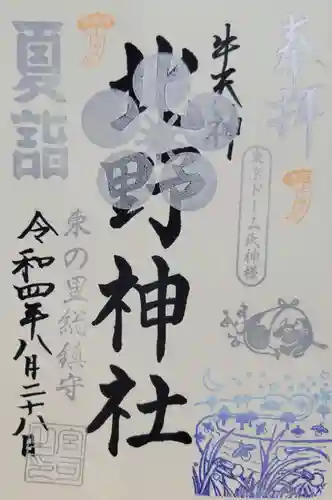 奉拝
牛天神
東京ドーム氏神様
北野神社
夏詣
東の里総鎮守
令和四年八月二十八日